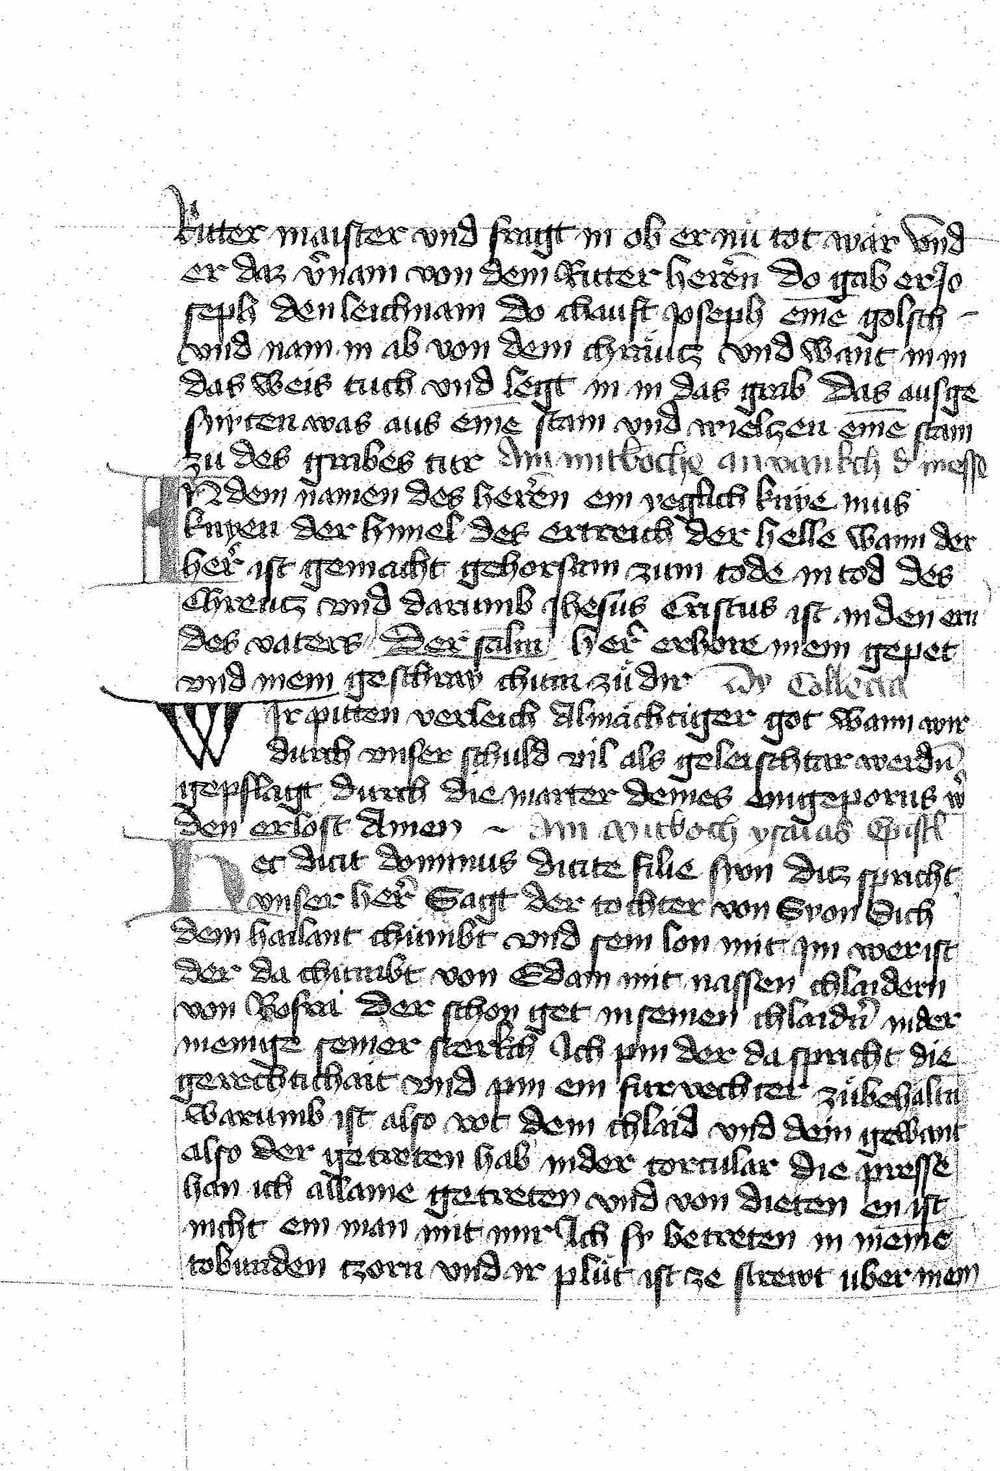 Ritter maister vnd fragt in ob er nu tot wär Vnd
er daz v̄nam von dem Ritter herēn Do gab er Jo
seph den leichnam Do chauft Joseph eine golsch
vnd nam in ab von dem chräutz vnd want in in
das weis tuch vnd legt in in das grab Das ausge
snyten was aus eine stain vnd wielczen eine stain
zu des grabes tur Am mitboche anvankch d' messe
IN dem namen des herēn ein yeglich knye mus
knyen der hymel des ertreich der helle wann der
her ist gemacht gehorsam zum tode in tod des
Chreutz vnd darumb Jhesus Cristus ist in den ern
des vaters Der salm her erhore mein gepet
vnd mein geschray chum zu dir Dy Collecta
WIr pitten verleich Almächtiger got wann wir
durch vnser schuld vil als geleischtar werdn̄
gepflagt durch die marter deines eingeporns w'
den erlost Amen ~ Am mitboch ysaias Epistl
Hec dicit dominus dicite filie syon ditz spricht
vnser her Sagt der tochter von Syon Sich
dem hailant chümbt vnd sein lon mit Jm wer ist
der da chumbt von Edam mit nassen chlaidern
von Bosrai Der schon get in seinen chlaidn̄ in der
menige seiner sterkch Ich pin der da spricht die
gerechtichait vnd pin ein furvechter zübehaltn̄
Warumb ist also rot dem chlaid vnd dein gewant
also der getreten hab in der torcular die presse
han ich allaine getreten vnd von dieten en ist
nicht ein man mit mir Ich sy betreten in meine
tobunden czorn vnd ir plüt ist ze strewt uber mein